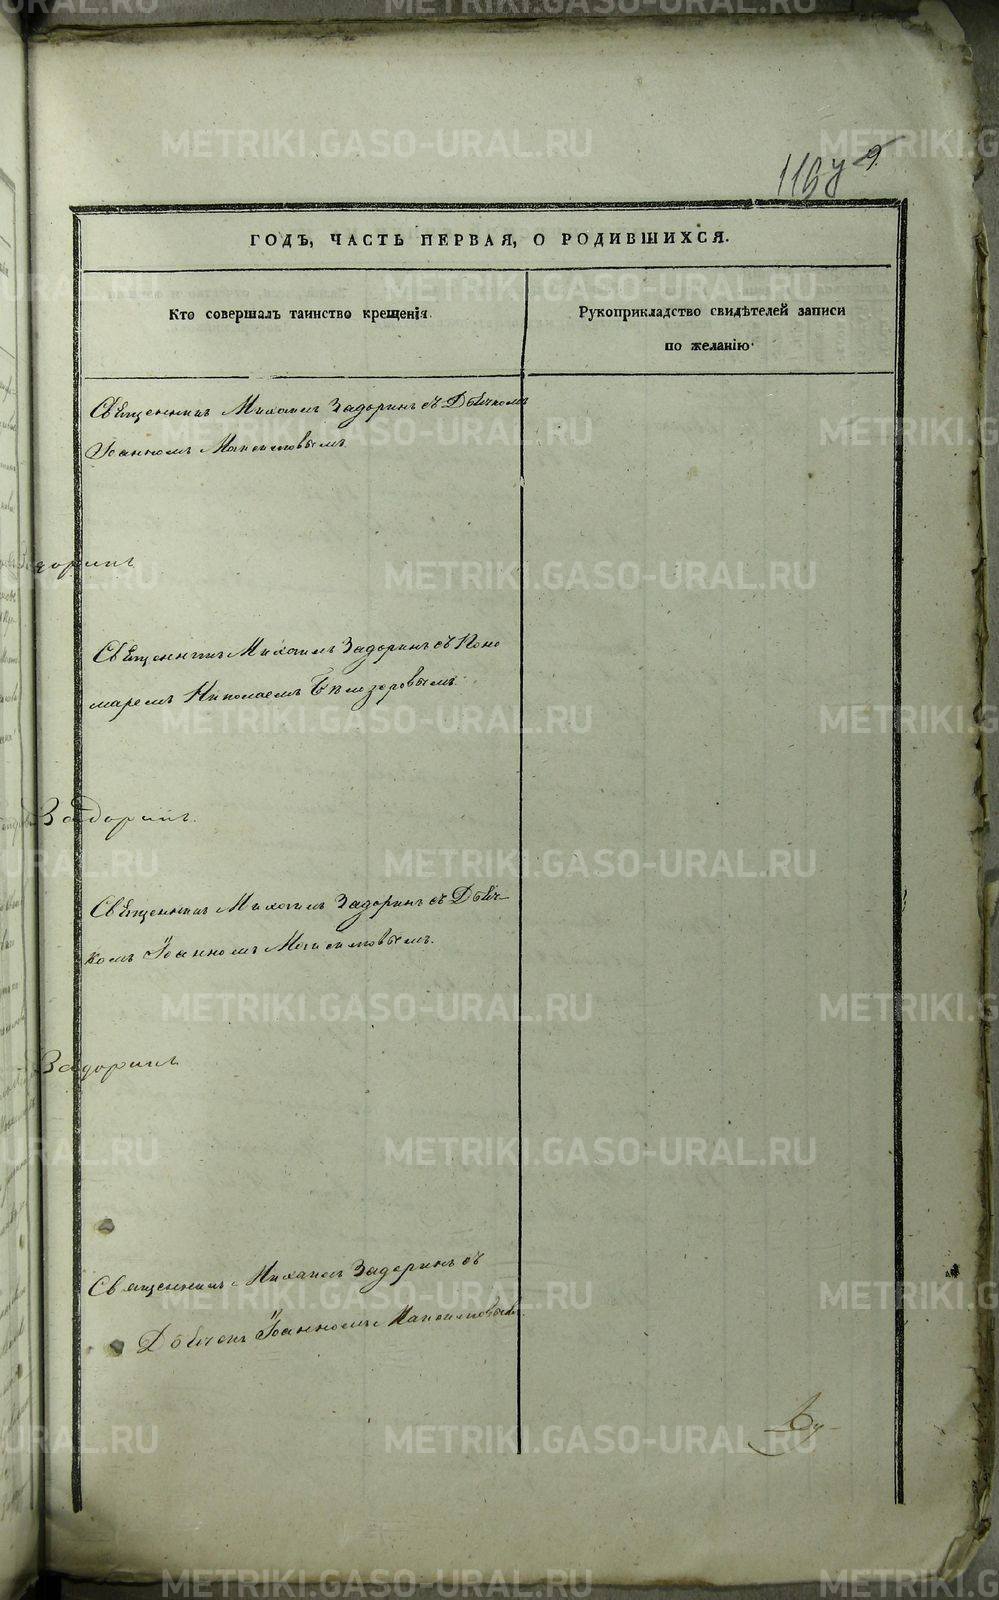 ГОДЪ, ЧАСТЬ ПЕРВАЯ, О РОДИВШИХСЯ.
Кто совершалъ таинство крещенія.
Рукоприкладство свидѣтелей записи
по желанію.
Священникъ Михаилъ Задоринъ съ Дьячкомъ
Іоанномъ Максимовымъ
Задоринъ
Священникъ Михаилъ Задоринъ съ Поно
маремъ Николаемъ
Задоринъ.
Священникъ Михаилъ Задоринъ съ Дьяч-
комъ Іоанномъ Максимовымъ.
Задоринъ
Священникъ Михаилъ Задоринъ съ
Іоанномъ Максимовымъ
METRIKI.GASO-URAL.RU